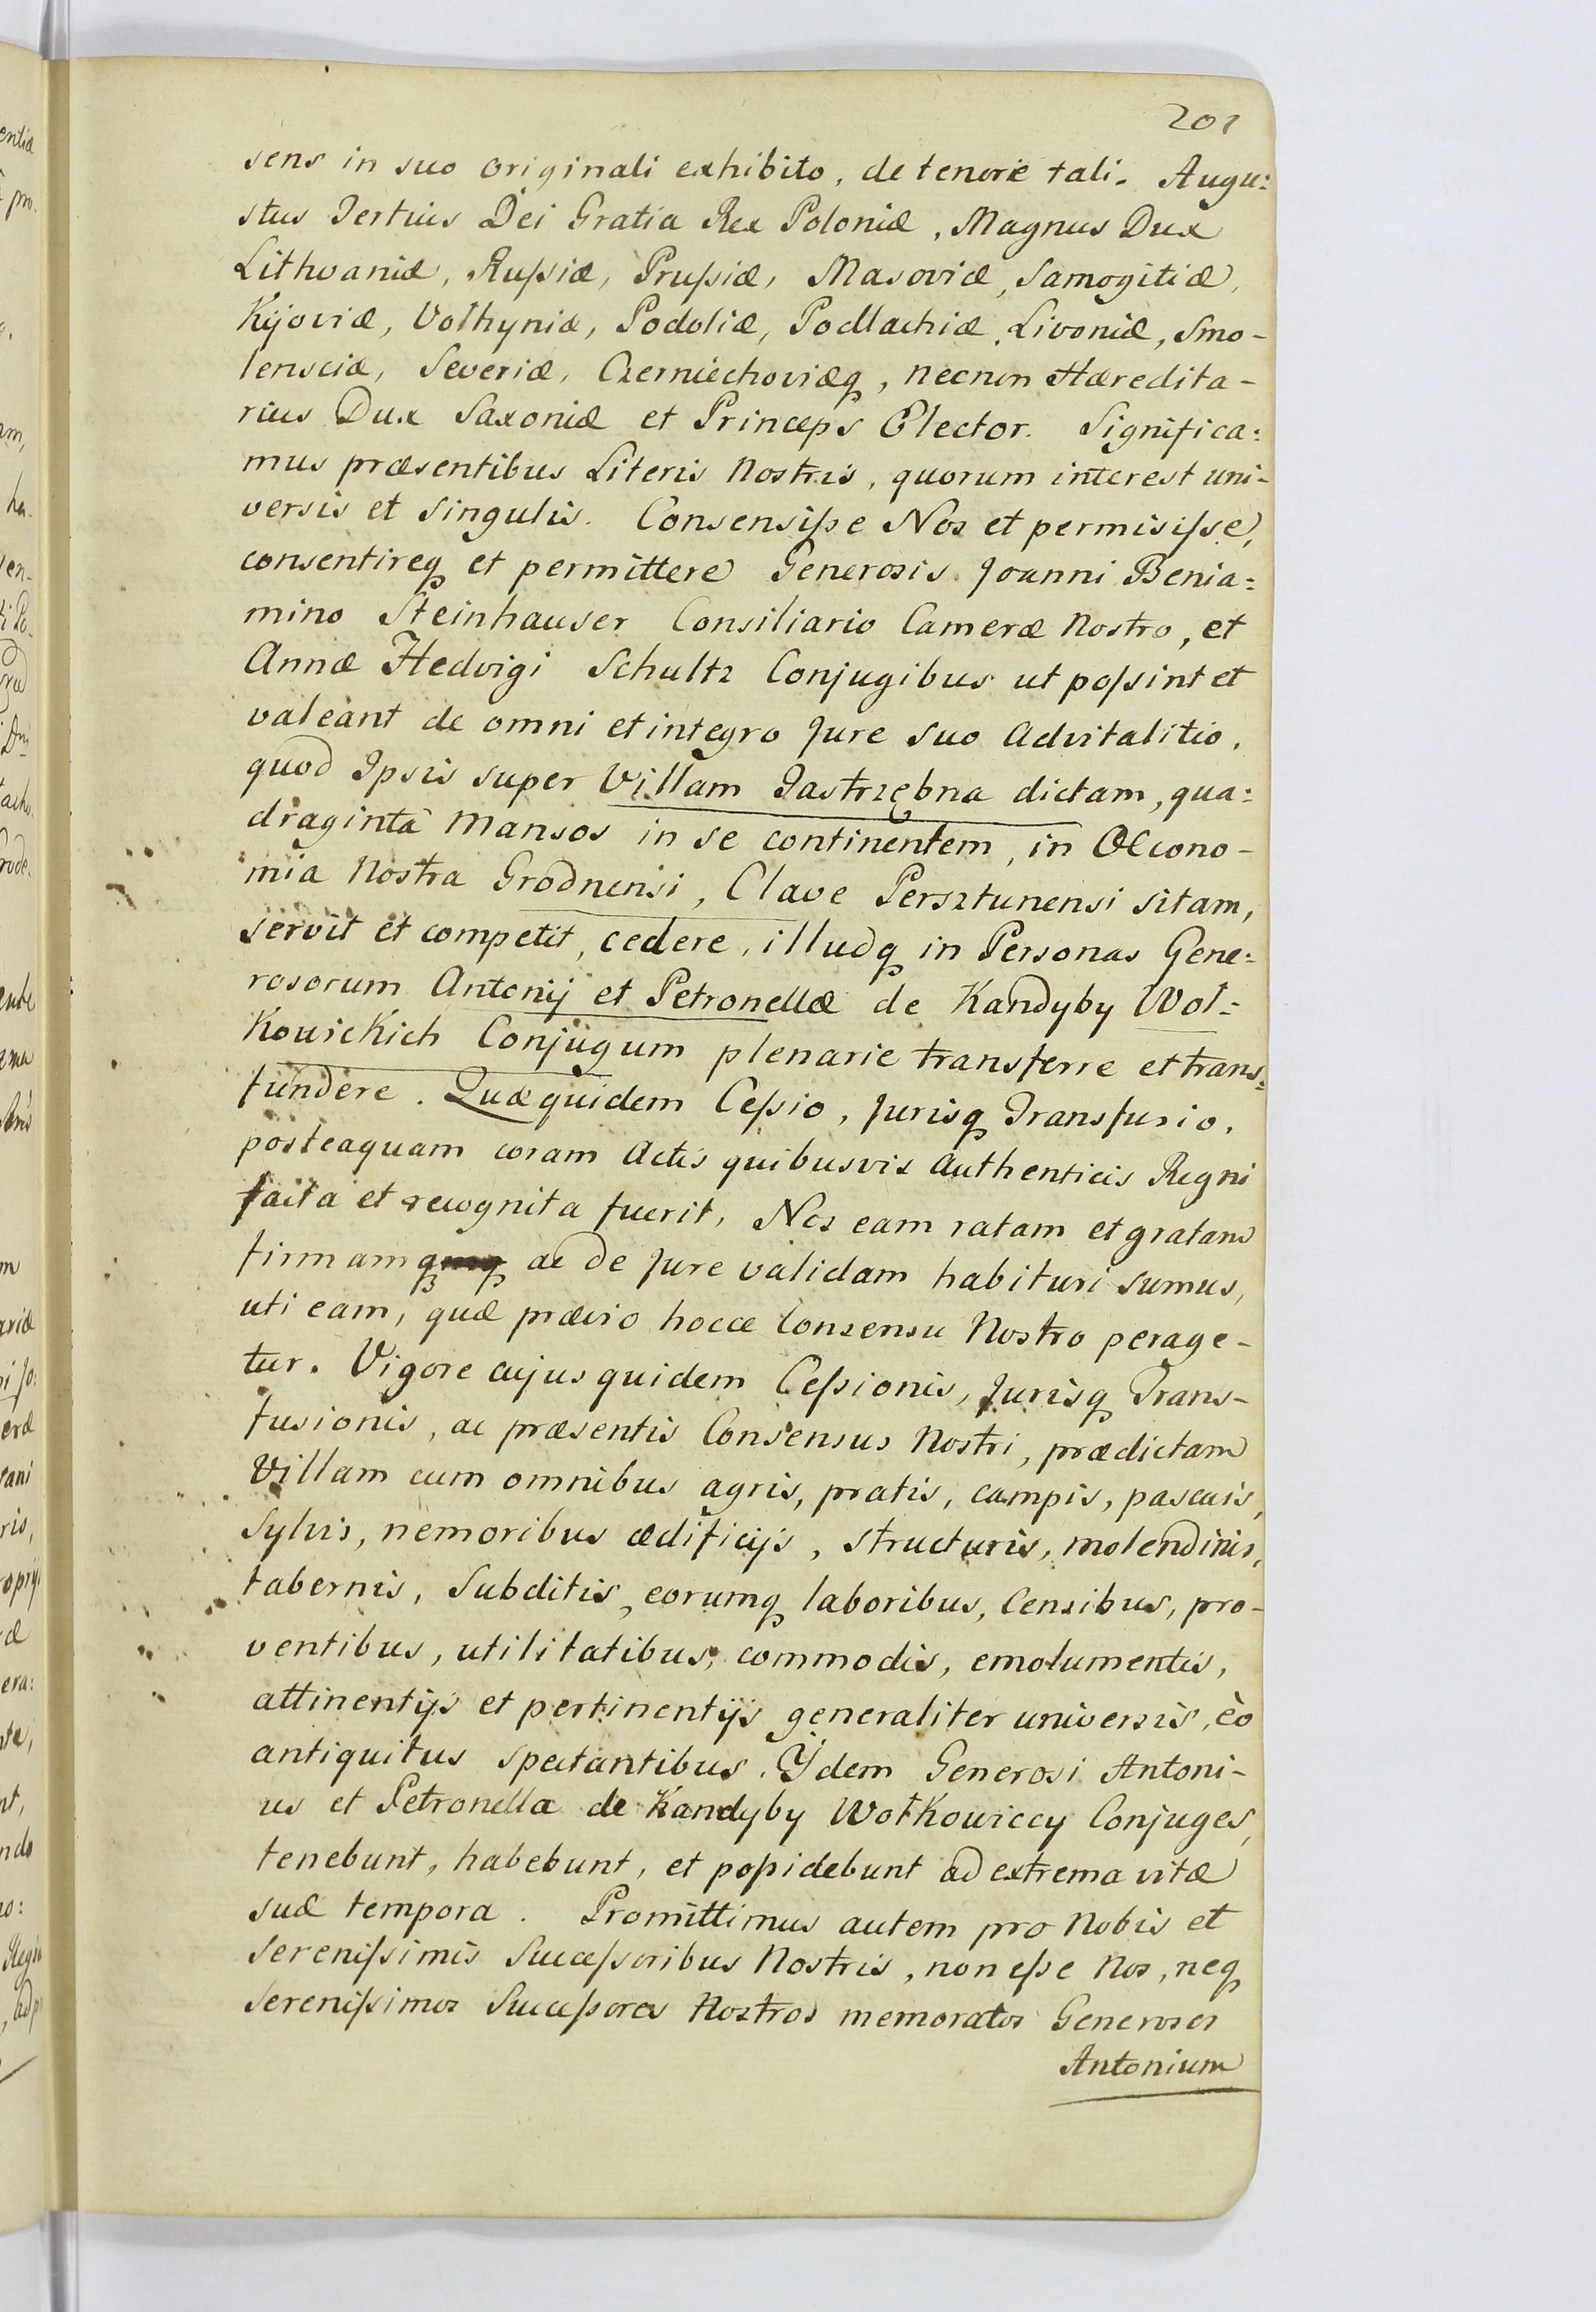 201
sens in suo originali exhibito, de tenore tali. Augu:
stus Tertius Dei Gratia Rex Poloniæ, Magnus Dux
Lithvaniæ, Rußiæ, Prußiæ, Masoviæ, Samogitiæ,
Kijoviæ, Volhyniæ, Podoliæ, Podlachiæ, Livoniæ, Smo-
lensciæ, Severiæ, Czerniechoviæq, necnon Hæredita-
rius Dux Saxoniæ et Princeps Elector. Significa:
mus præsentibus Literis Nostris, quorum interest uni-
versis et singulis. Consensiße Nos et permisiße,
consentireq et permittere Generosis Joanni Benia:
mino Steinhauser Consiliario Cameræ Nostro, et
Annæ Hedvigi Schultz Conjugibus ut poßint et
valeant de omni et integro Jure suo Advitalitio,
quod Ipsis super Villam Jastrzębna dictam, qua:
draginta Mansos in se continentem, in Œcono-
mia Nostra Grodnensi, Clave Persztunensi sitam,
servit et competit, cedere, illudq in Personas Gene:
rosorum Antonij et Petronellæ de Kandyby Woł-
Kowickich Conjugum plenarie transferre et trans:
fundere. Quæquidem Ceßio, Jurisq Transfusio,
posteaquam coram Actis quibusvis Authenticis Regni
facta et recognita fuerit, Nos eam ratam et gratam
firmamq ac de Jure validam habituri sumus,
uti eam, quæ prævio hocce Consensu Nostro perage-
tur. Vigore cujusquidem Ceßionis, Jurisq Trans-
fusionis, ac præsentis Consensus Nostri, prædictam
Villam cum omnibus agris, pratis, campis, pascuis,
Sylvis, nemoribus ædificijs, structuris, molendinis,
tabernis, Subditis, eorumq laboribus, Censibus, pro-
ventibus, utilitatibus, commodis, emolumentis,
attinentijs et pertinentijs generaliter universis, èo
antiquitus spectantibus. Ijdem Generosi Antoni-
us et Petronella de Kandyby Wołkowiccy Conjuges,
tenebunt, habebunt, et poßidebunt ad extrema vitæ
suæ tempora. Promittimus autem pro Nobis et
Sereníßimis Succeßoribus Nostris, non eße Nos, neq
Sereníßimos Succeßores Nostros memoratos Generosos
Antonium